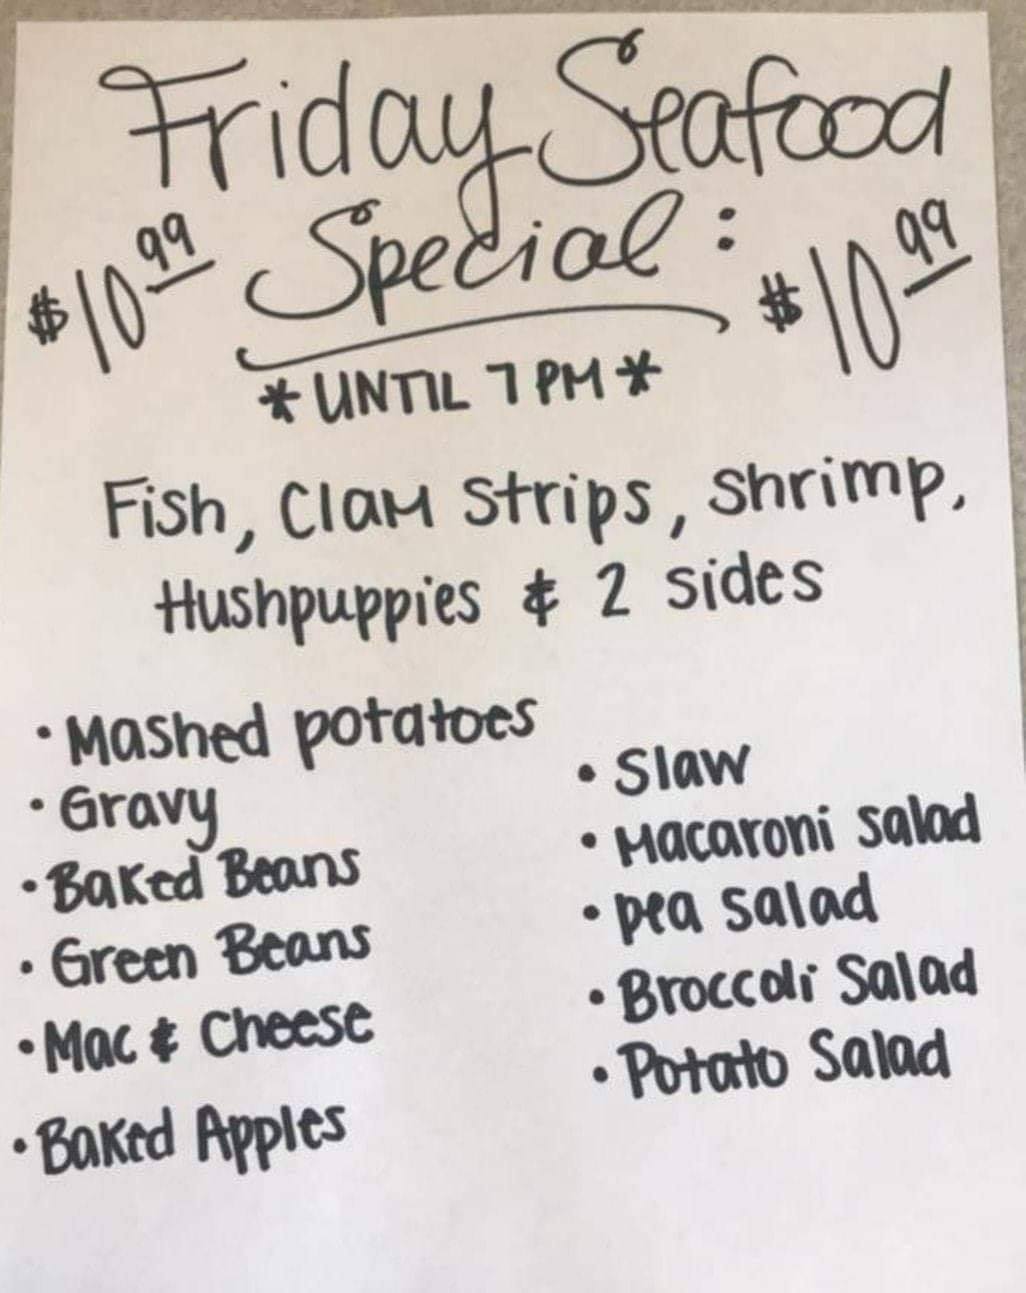 Friday Seafood
$10.99 Special: $10.99
*UNTIL 7 PM*
Fish, Clam Strips, Shrimp,
Hushpuppies & 2 sides
• Mashed potatoes
• Gravy
• Baked Beans
• Green Beans
• Mac & Cheese
• Baked Apples
• Slaw
• Macaroni salad
• pea salad
• Broccoli Salad
• Potato Salad